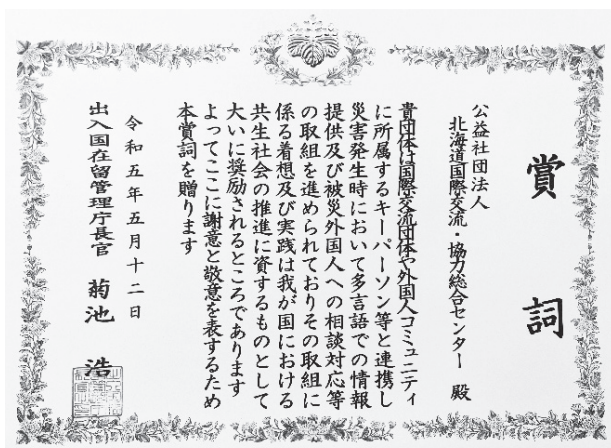 賞詞
公益社団法人
北海道国際交流・協力総合センター 殿
貴団体は国際交流団体や外国人コミュニティ
に所属するキーパーソン等と連携し
災害発生時において多言語での情報
提供及び被災外国人への相談対応等
の取組を進められておりその取組に
係る着想及び実践は我が国における
共生社会の推進に資するものとして
大いに奨励されるところであります
よってここに謝意と敬意を表するため
本賞詞を贈ります
令和五年五月十二日
出入国在留管理庁長官 菊池 浩